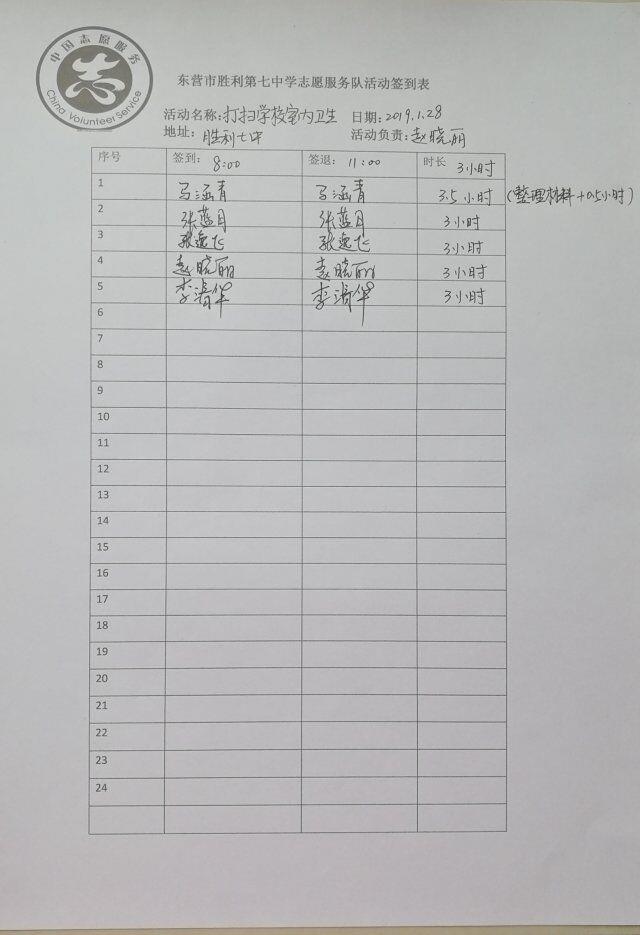 中国志愿服务
志
China Volunteer Service
东营市胜利第七中学志愿服务队活动签到表
活动名称:打扫学校室内卫生 日期:2019.1.28
地址:胜利七中 活动负责:赵晓丽
序号 签到: 8:00 签退: 11:00 时长 3小时
1 马涵青 马涵青 3.5小时 (整理材料+0.5小时)
2 张蓝月 张蓝月 3小时
3 张逸飞 张逸飞 3小时
4 赵晓丽 赵晓丽 3小时
5 李清华 李清华 3小时
6
7
8
9
10
11
12
13
14
15
16
17
18
19
20
21
22
23
24